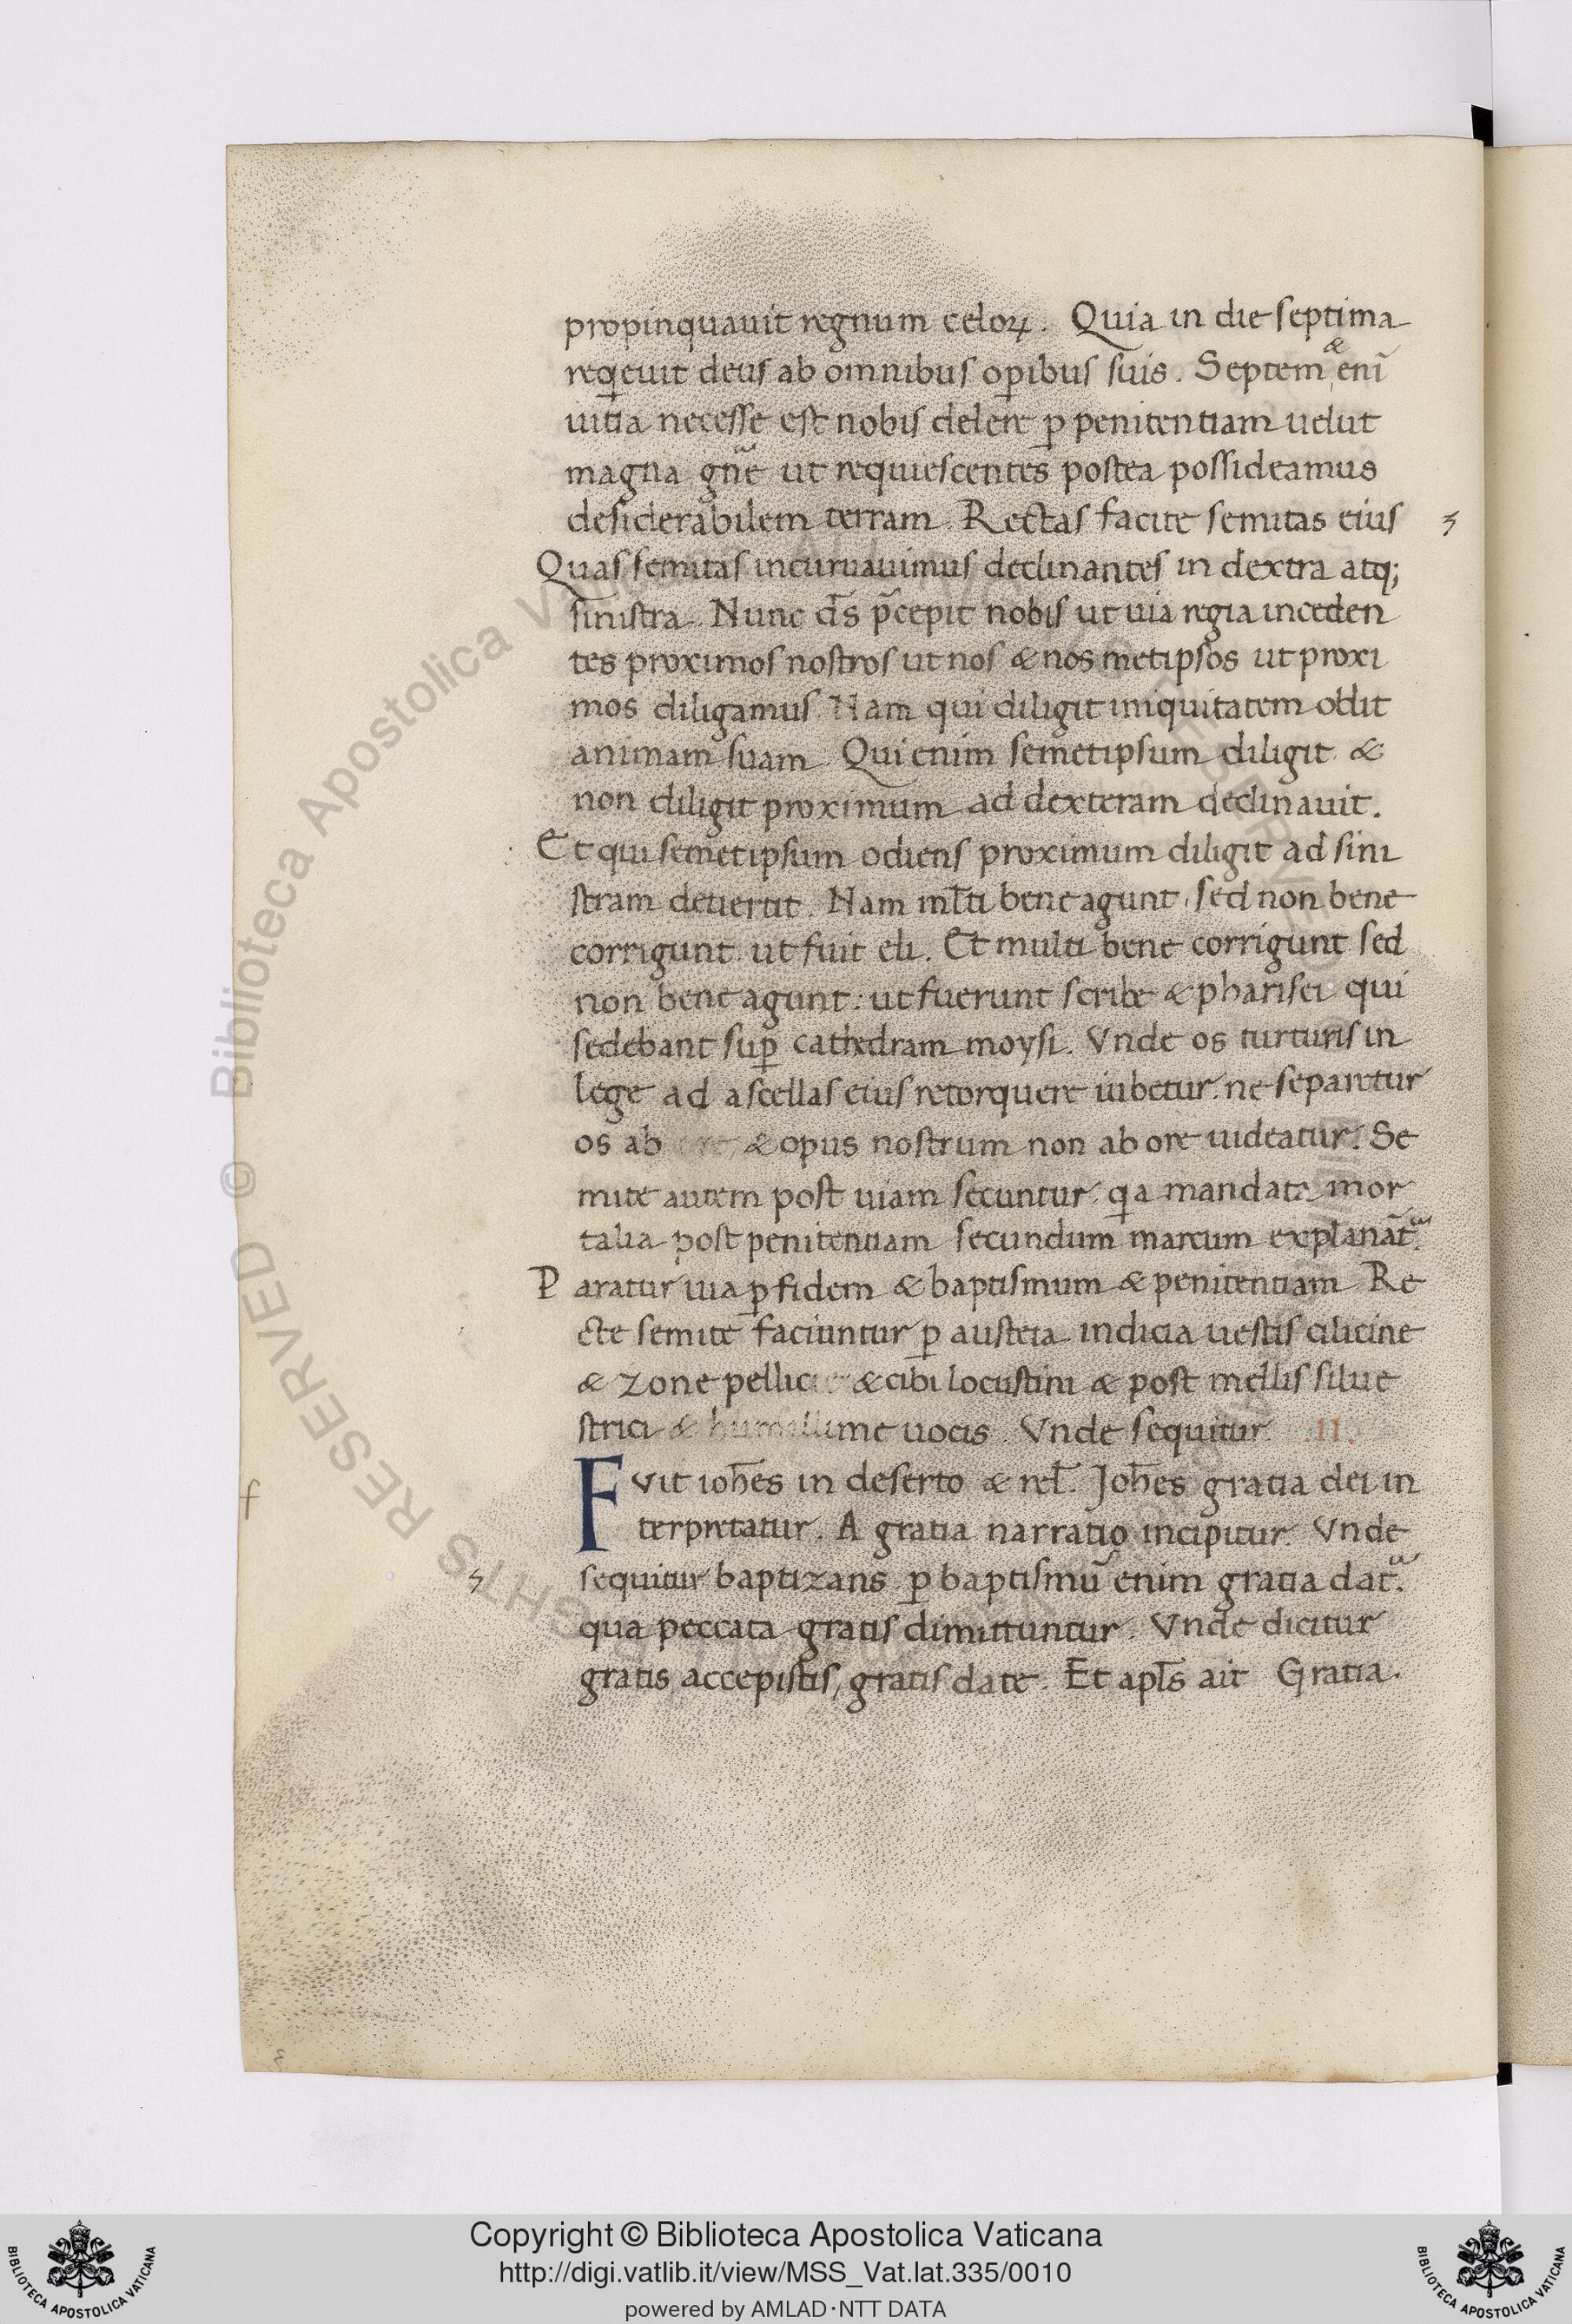 propinquauit regnum celoꝝ. Quia in die septima
reqͥeuit deus ab omnibus oꝑibus suis. Septem & enī
uitia necesse est nobis delere ꝑ penitentiam uelut
magna gn̄e ut requiescentes postea possideamus
desiderabilem terram. Rectas facite semitas eius
Quas semitas incuruauimus declinantes in dextra atq;
sinistra. Nunc d̄s p̄cepit nobis ut uia regia inceden
tes proximos nostros ut nos & nos metipsos ut proxi
mos diligamus. Nam qui diligit iniquitatem odit
animam suam. Qui enim semetipsum diligit &
non diligit proximum ad dexteram declinauit.
Et qui semetipsum odiens proximum diligit ad sini
stram deuertit. Nam ml̄ti bene agunt, sed non bene
corrigunt ut fuit eli. Et multi bene corrigunt sed
non bene agunt: ut fuerunt scribe & pharisei qui
sedebant suꝑ cathedram moysi. Vnde os turturis in
lege ad ascellas eius retorquere iubetur. ne separetur
os ab & opus nostrum non ab ore uideatur. Se
mite autem post uiam secuntur. qͥa mandata mor
talia post penitentiam secundum marcum explanat̄.
Paratur uia ꝑ fidem & baptismum & penitentiam Re
cte semite faciuntur ꝑ austera indicia uestis cilicine
& zone pellicie & cibi locustini & post mellis silue
strici & humillime uocis. Vnde sequitur. .II.
Fvit ioh̄es in deserto & rel̄. Joh̄es gratia dei in
terpretatur. A gratia narratio incipitur. Vnde
sequitur baptizans. ꝑ baptismū enim gratia dat̄.
qua peccata gratis dimittuntur. Vnde dicitur
gratis accepistis, gratis date. Et apl̄s ait Gratia.
Copyright © Biblioteca Apostolica Vaticana
http://digi.vatlib.it/view/MSS_Vat.lat.335/0010
powered by AMLAD·NTT DATA
BIBLIOTECA APOSTOLICA VATICANA
BIBLIOTECA APOSTOLICA VATICANA